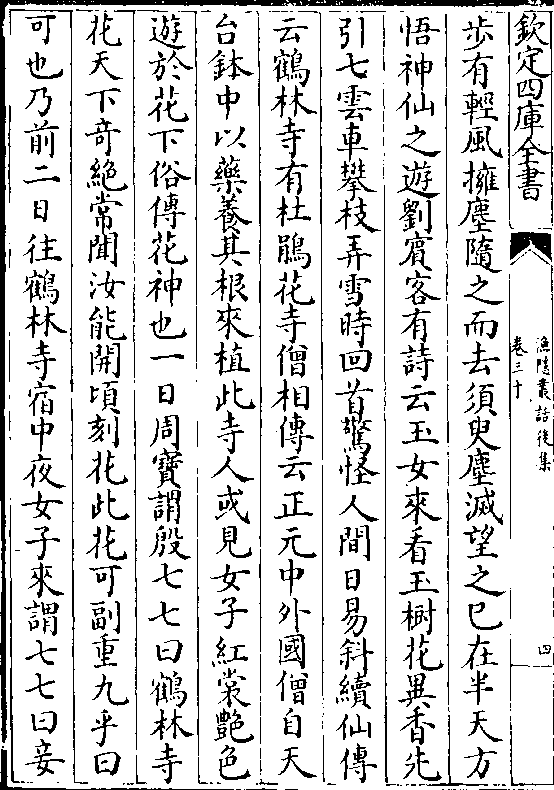 欽定四庫全書
漁隱叢話後集
卷三十
四
步有輕風擁塵隨之而去須臾塵滅望之已在半天方
悟神仙之遊劉賓客有詩云玉女來看玉樹花異香先
引七雲車攀枝弄雪時回首驚怪人間日易斜續仙傳
云鶴林寺有杜鵑花寺僧相傳云正元中外國僧自天
台鉢中以藥養其根來植此寺人或見女子紅裳艷色
遊於花下俗傳花神也一日周寶謂殷七七曰鶴林寺
花天下竒絶常聞汝能開頃刻花此花可副重九乎曰
可也乃前二日往鶴林寺宿中夜女子來謂七七曰妾